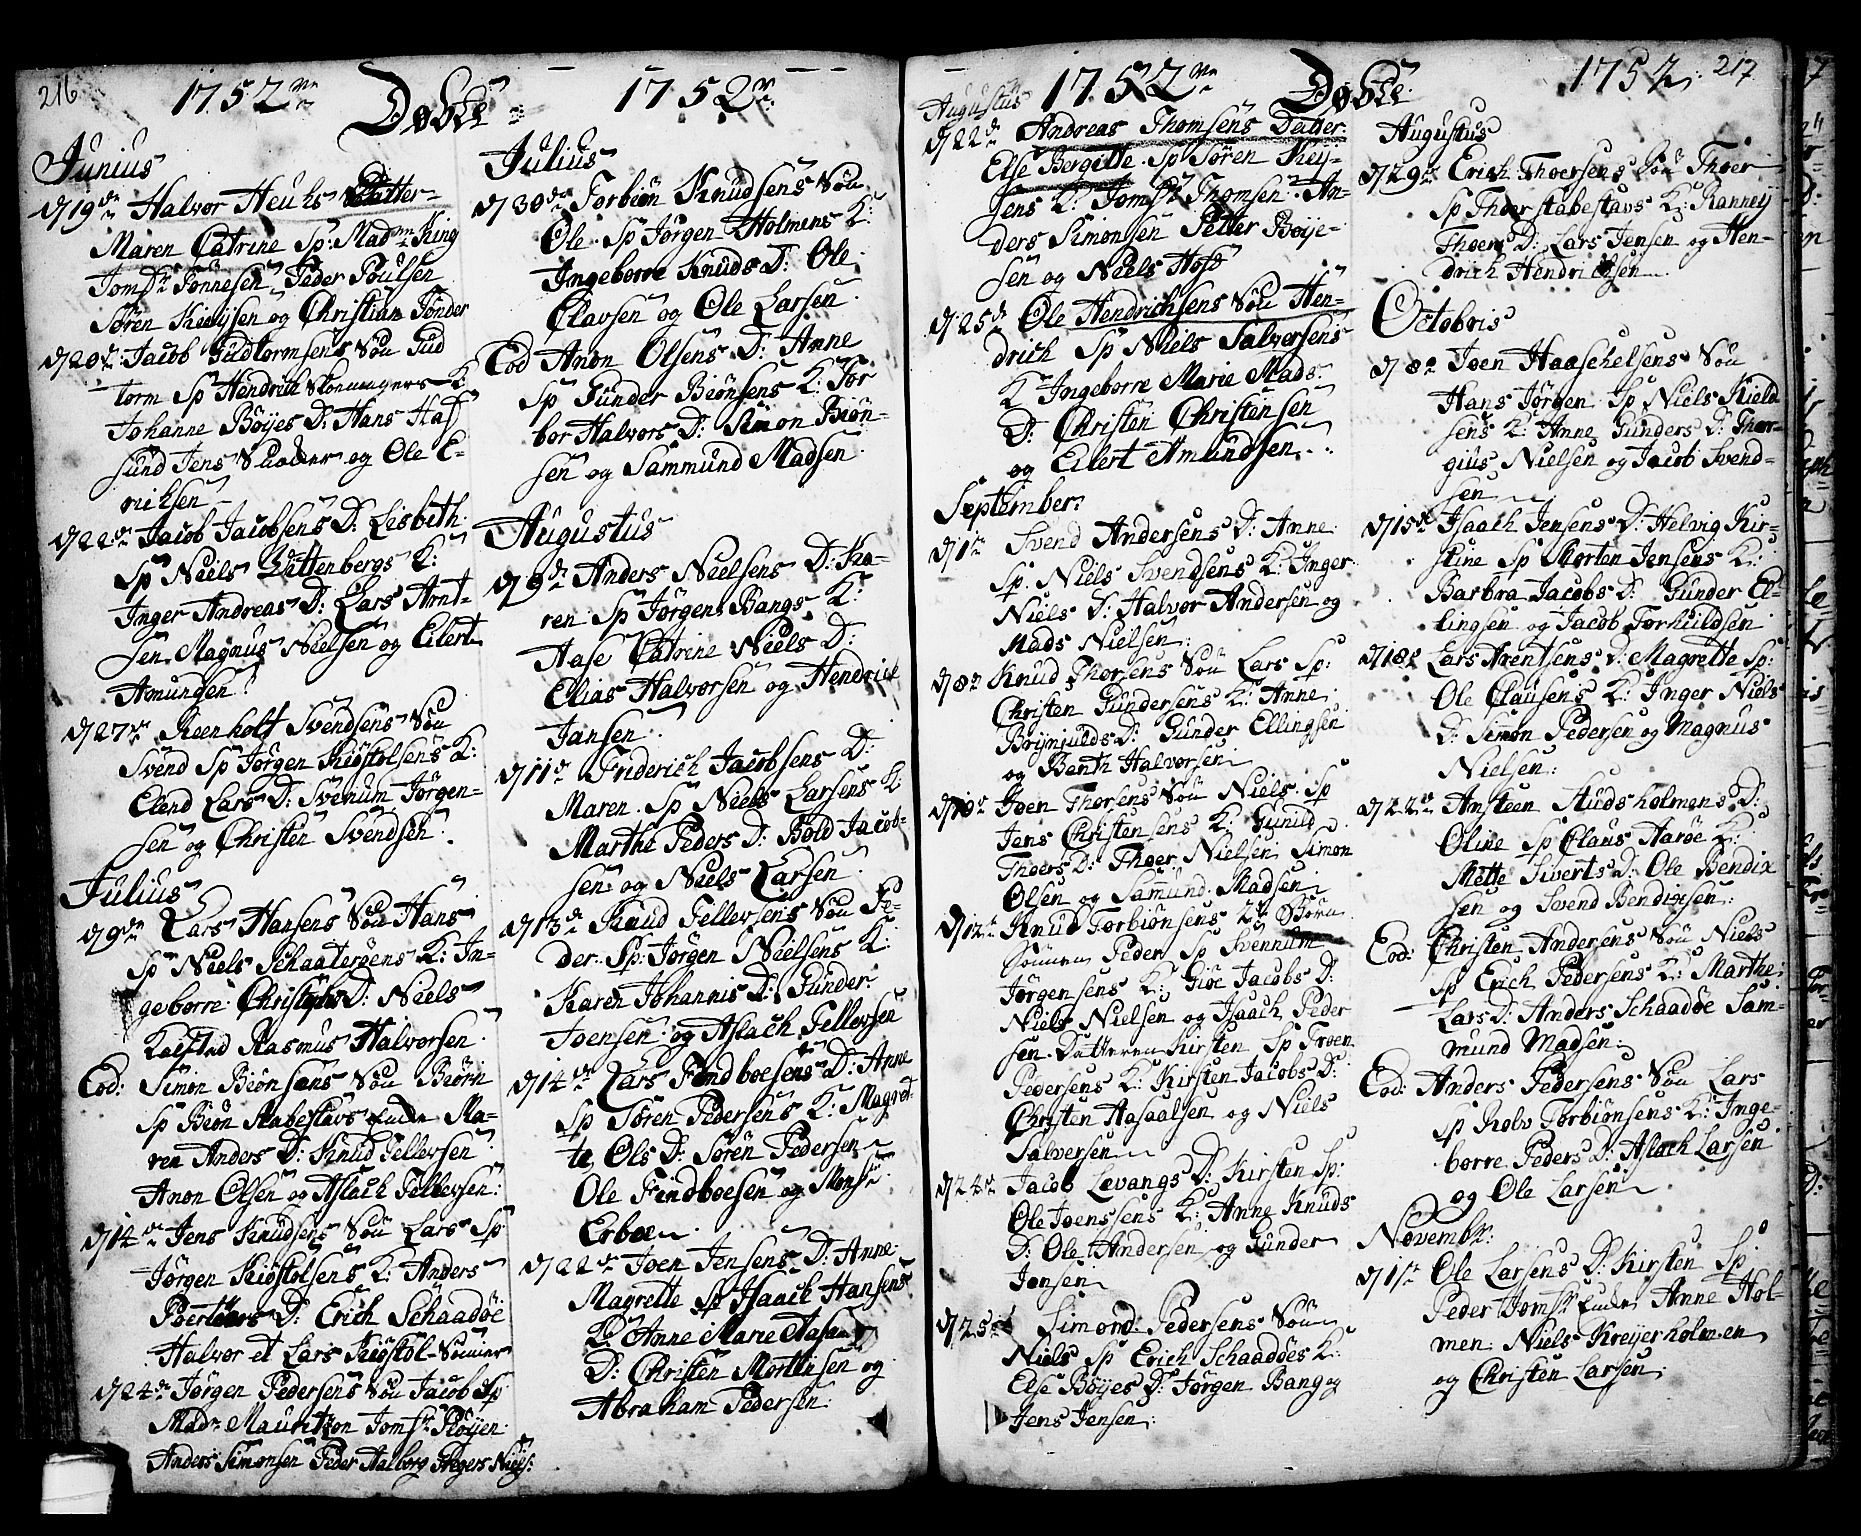 216
1752 Døbte 1752
Junius
d/19 Halvor Heuchs Datter
Maren Catrine Sp: Mad King
Jomfr Tonnesen Peder Poulsen
Søren Kieysen og Christian Tønder
d/20 Jacob Gudtormsens Søn Gud
torm Sp Hendrich K
Johanne Böyes D: Hans Has
sund Jens og Ole E-
richsen
d/22 Jacob Jacobsens D: Lisbeth
Sp Niels Wittenbergs K:
Inger Andreas D: Lars Arnt-
sen Magnus Nielsen og Eilert
Amundsen
d/27 Reenholt Svendsens Søn
Svend Sp Jörgen Kiöstolsens K:
Elend Lars D: Svenum Jörgen-
sen og Christen Svendsen
Julius
d/9 Lars Hansens Søn Hans
Sp Niels Schaateröens K: In-
geborre D: Niels
Kalstad Rasmus Halvorsen
Eod: Simon Biönsens Søn Beörn
Sp Biön Stabestavs Ma-
ren Anders D: Knud Tellevsen
Anon Olsen og Aslach Tellevsen
d/14 Jens Knudsens Søn Lars Sp
Jörgen Kiöstolsens K: Anders
D: Erich Schaadöe
Halvor et Lars Kiöstol-Sønner
d/24 Jörgen Pedersens Søn Jacob Sp
Mad Mauritzon Jomfr Plöyen
Anders Simonsen Peder Aalborg Gregers Niels:
Julius
d/30 Torbiön Knudsens Søn
Ole Sp Jörgen Holmens K:
Ingeborre Knuds D: Ole
Clavsen og Ole Larsen
Eod Anon Olsens D: Anne
Sp Gunder Biönsens K: Tor
bor Halvors D: Simon Biön-
sen og Sammund Madsen
Augustus
d/9 Anders Nielsens D: Ka-
ren Sp Jörgen Bangs K:
Aase Catrine Niels D:
Elias Halvorsen og Hendrick
Jansen
d/11 Friderich Jacobsens D:
Maren Sp Niels Larsens K
Marthe Peders D: Bold Jacob-
sen og Niels Larsen
d/13 Knud Tellevsens Søn Pe-
der Sp: Jörgen Nielsens K:
Karen Johannis D: Gunder
Joensen og Aslach Tellevsen
d/14 Lars Findboesens D: Anne
Sp Sören Pedersens K: Magret-
te Ols D: Sören Pedersen
Ole Findboesen og Mons
Erboe
d/22 Joen Jensens D: Anne
Magrette Sp Isaach Hansens
K: Anne Marie Aase
D: Christen Mortensen og
Abraham Pedersen
1752 Døbte 1752 217
Augustus
d/22 Andreas Thomsens Datter
Else Bergitte Sp Sören Kiey-
sens K: Jomfr Thomsen An-
ders Simonsen Petter Böije-
sen og Niels
d/25 Ole Hendrichsens Søn Hen-
drich Sp Niels Salversens
K Ingeborre Marie Mads
D: Christen Christensen
og Eilert Amundsen
September
d/1 Svend Andersens D: Anne
Sp. Niels Svendsens K: Inger
Niels D: Halvor Andersen og
Mads Nielsen
d/8 Knud Thorsens Søn Lars Sp:
Christen Gundersens K: Anne
Brynjulds D: Gunder Ellingsen
og Benth Halvorsen
d/10 Joen Thorsens Søn Niels Sp
Jens Christensens K: Gunild
Thoers D: Thoer Nielsen Simon
Olsen og Samund Madsen
d/12 Knud Torbiönsens 2de Børn
Sønnen Peder Sp Svennum
Jörgensens K: Giöe Jacobs D:
Niels Nielsen og Isaach Peder
sen Datteren Kirsten Sp Troen
Pedersens K: Kirsten Jacobs D:
Christen Aasaalsen og Niels
Salversen
d/24 Jacob Lovangs D: Kirsten Sp:
Ole Joenssens K: Anne Knuds
D: Ole Andersen og Gunder
Jonsen
d/25 Simon Pedersens Søn
Niels Sp Erich Schaadöes K:
Else Böyes D: Jörgen Bang og
Jens Jensen
Augustus
d/29 Erich Thoersens Søn Thoer
Sp Thoer Stabestavs K: Ranneij
Thoers D: Lars Jensen og Hen-
drich Hendrichsen
Octobris
d/8 Joen Haaschelsens Søn
Hans Jörgen Sp Niels Kield
sens K: Anne Gunders D: Thor-
gius Nielsen og Jacob Svend-
sen
d/15 Isaach Jensens D: Helvig Kir-
stine Sp Morten Jensens K:
Barbra Jacobs D: Gunder El-
lingsen og Jacob Torkildsen
d/18 Lars Arentsens D: Magrette Sp:
Ole Clausens K: Inger Niels
D: Simon Pedersen og Magnus
Nielsen
d/22 Ansteen Studsholmens D:
Oline Sp Claus Aaröe K:
Mette Siverts D: Ole Bendix
sen og Svend Bendixsen
Eod: Christen Andersens Søn Niels
Sp Erich Pedersens K: Marthe
Lars D: Anders Schaadöe Sam-
mund Madsen
Eod: Anders Pedersens Søn Lars
Sp Rolv Torbiönsens K: Inge-
borre Peders D: Aslach Larsen
og Ole Larsen
Novembr:
d/1 Ole Larsens D: Kirsten Sp
Peder Anne Hol-
men Niels Kreijerholmen
og Christen Larsen